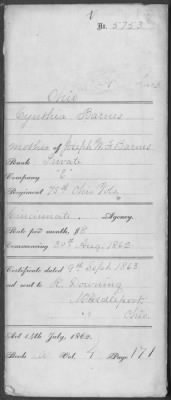 No. 5753
Ohio
Cynthia Barnes
mother of Joseph W. F. Barnes
Rank Private
Company "E"
Regiment 75th Ohio Vols
Cincinnati Agency.
Rate per month, $8
Commencing 30th Aug. 1862
Certificate dated 9th Sept 1863
and sent to R. Downing
Middleport
Ohio.
Act 14th July, 1862.
Book Vol. 1 Page 171